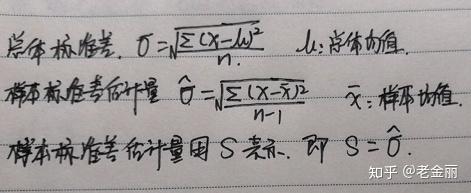 总体标准差. σ=√(Σ(x-μ)²/n. μ:总体均值.
样本标准差估计量 σ̂=√(Σ(x-x̄)²/n-1 x̄:样本均值.
样本标准差估计量用S表示. 即 S=σ̂.
知乎 @老金丽